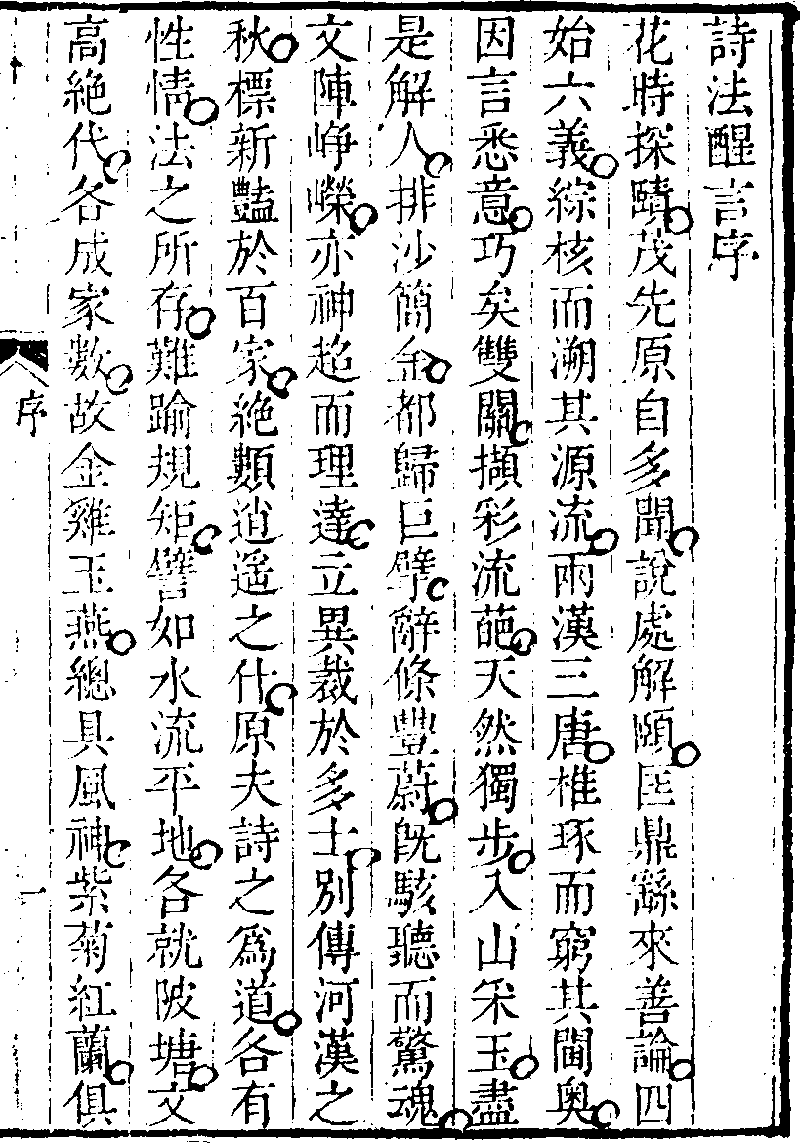 詩法醒言序
花時探賾茂先原自多聞說處解頤匡鼎繇來善論四
始六義綜核而溯其源流兩漢三唐椎琢而窮其閫奧
因言悉意巧矣雙關擷彩流葩天然獨步入山采玉盡
是解人排沙簡金都歸巨擘辭條豐蔚旣駭聽而驚魂
文陣崢嶸亦神超而理達立異裁於多士別傳河漢之
秋標新豔於百家絶類逍遙之什原夫詩之爲道各有
性情法之所存難踰規矩譬如水流平地各就陂塘文
高絶代各成家數故金雞玉燕總具風神紫菊紅蘭俱
序
一